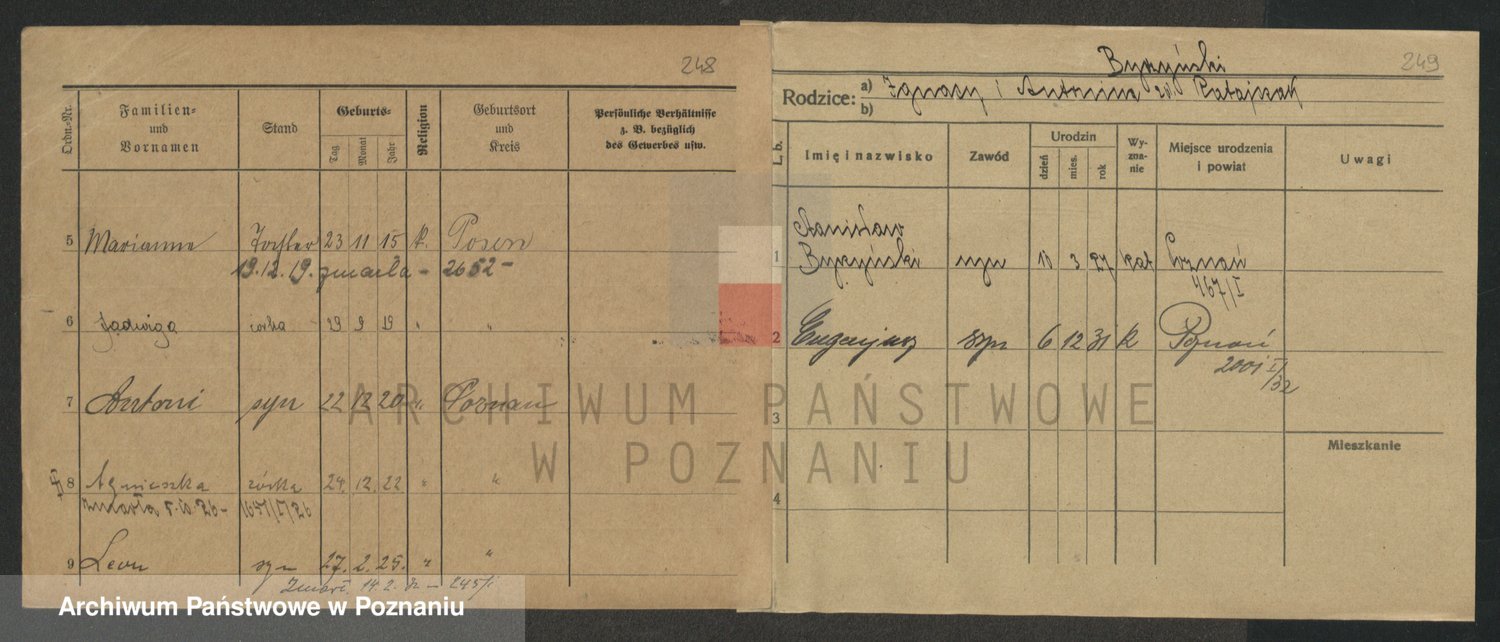 248
Ordn.-Nr.
Familien- und Vornamen
Stand
Geburts-
Tag
Monat
Jahr
Religion
Geburtsort und Kreis
Persönliche Verhältnisse z. B. bezüglich des Gewerbes usw.
5 Marianna Tochter 23 11 15 k. Posen
19.12.19. zmarła - 2652 -
6 Jadwiga córka 19 9 19 " "
7 Antoni syn 22 12 20 " Poznań
8 Agnieszka córka 24. 12. 22 " "
zmarła
9 Leon syn 27. 2. 25. " "
Zmarł 14.2.
249
Byzyński
Rodzice: a) Ignacy i Antonina Ratajczak
b)
L.b.
Imię i nazwisko
Zawód
Urodzin
dzień
mies.
rok
Wyznanie
Miejsce urodzenia i powiat
Uwagi
Stanisław
1 Byzyński syn 3 27 kat Poznań
467/I
2 Eugenjusz syn 6 12 31 k Poznań
2001 I/32
3
Mieszkanie
4
ARCHIWUM PAŃSTWOWE
W POZNANIU
Archiwum Państwowe w Poznaniu